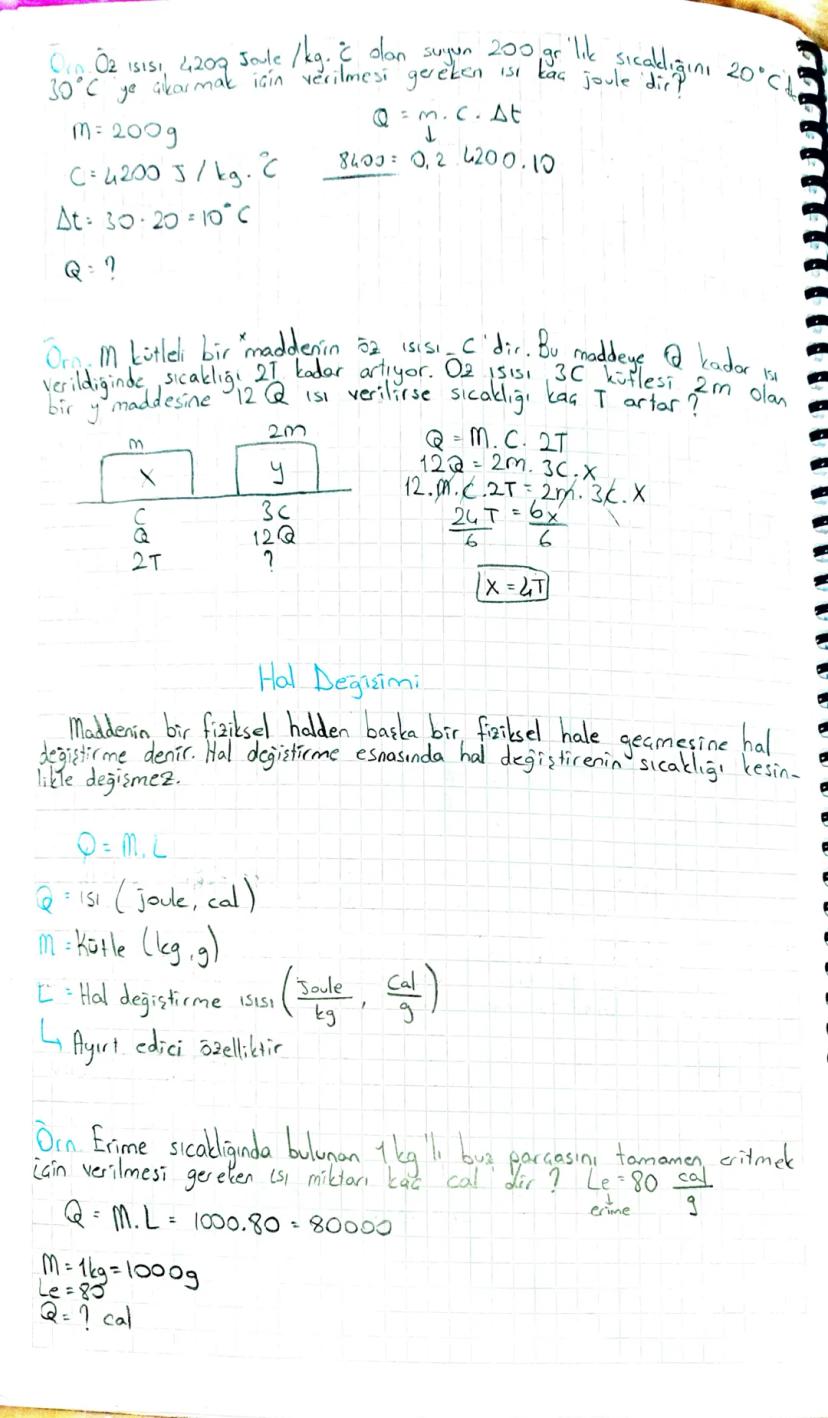 Örn. Öz ısısı 4200 Joule/kg.°C olan suyun 200 gr'lık sıcaklığını 20°C
30°C ye çıkarmak için verilmesi gereken ısı kaç joule'dir?
m=200g
Q = m.c.Δt
↓
C=4200 J/kg.°C
8400= 0,2 4200.10
Δt= 30-20=10°C
Q=?
Örn. M kütleli bir x maddenin öz ısısı C'dir. Bu maddeye Q kadar ısı
verildiğinde sıcaklığı 2T kadar artıyor. Öz ısısı 3C kütlesi 2m olan
bir y maddesine 12Q ısı verilirse sıcaklığı kaç T artar?
m
2m
X
y
C
3C
Q
12Q
2T
?
Q=M.C.2T
12Q=2m.3C.X
12.M.C.2T=2m.3C.X
24T/6 = 6x/6
X=4T
Hal Değişimi
Maddenin bir fiziksel halden başka bir fiziksel hale geçmesine hal
değiştirme denir. Hal değiştirme esnasında hal değiştirenin sıcaklığı kesin-
likle değişmez.
Q=M.L
Q=ısı (joule, cal)
M=Kütle (kg,g)
L=Hal değiştirme ısısı (Joule/kg, Cal/g)
↳ Ayırt edici özelliktir
Örn Erime sıcaklığında bulunan 1kg'lı buz parçasını tamamen eritmek
için verilmesi gereken ısı miktarı kaç cal'dir? Le=80 cal/g
↓
erime
Q=M.L= 1000.80=80000
M=1kg=1000g
Le=80
Q=? cal